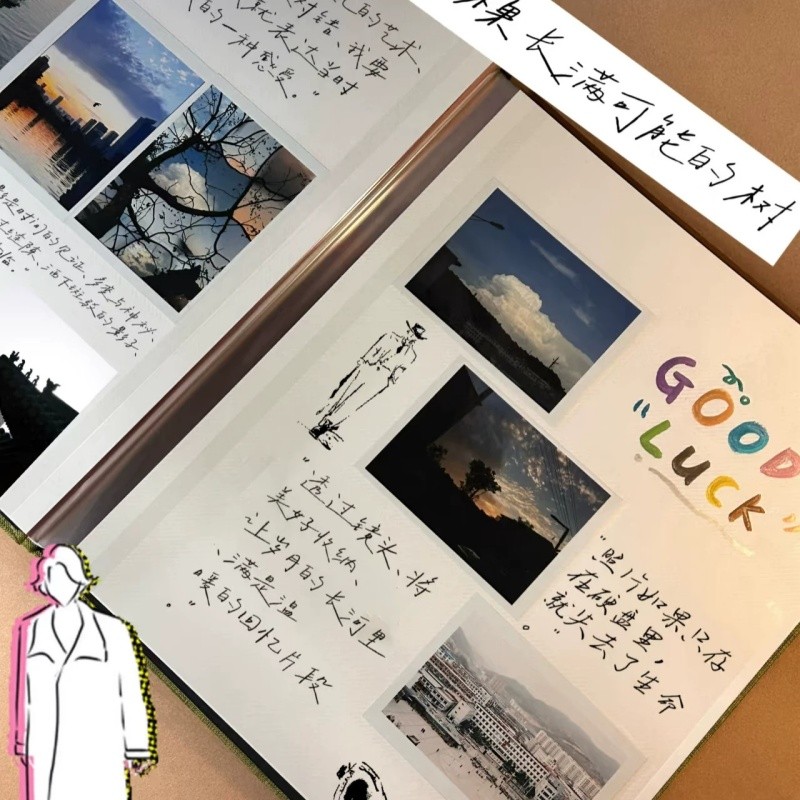 棵长满可能的树
的艺术、
对错、我要
就表达当时
的一种感受。”
是时间的见证、多变与神秘、
洒下斑驳的影子、
"GOOD
LUCK"
“透过镜头、将
美好收纳、
让岁月的长河里
、满是温
暖的回忆片段
。”
“照片如果只存
在硬盘里，
就失去了生命
。”